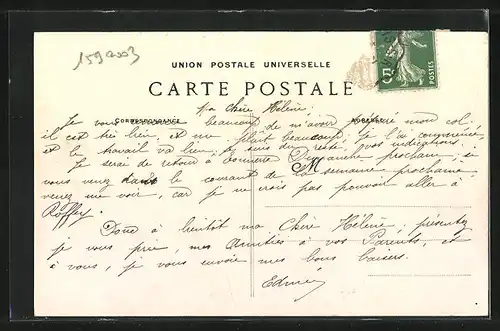 159 2003
UNION POSTALE UNIVERSELLE
CARTE POSTALE
ma Chère Hélène,
CORRESPONDANCE
ADRESSE
Je vous remercie beaucoup de m'avoir préparé mon col
il est très bien, et me plaît beaucoup. Je l'ai commencé,
et le travail va bien. Je suis du reste, vos indications.
Je serai de retour à Dimanche prochain, si
vous venez dans le courant de la Semaine prochaine,
venez me voir, car je ne crois pas pouvoir aller à
Roffey.
Donc à bientôt ma Chère Hélène, présentez
je vous prie, mes Amitiés à vos Parents, et
à vous, je vous envoie mes bons baisers.
Edmée
5c
POSTES